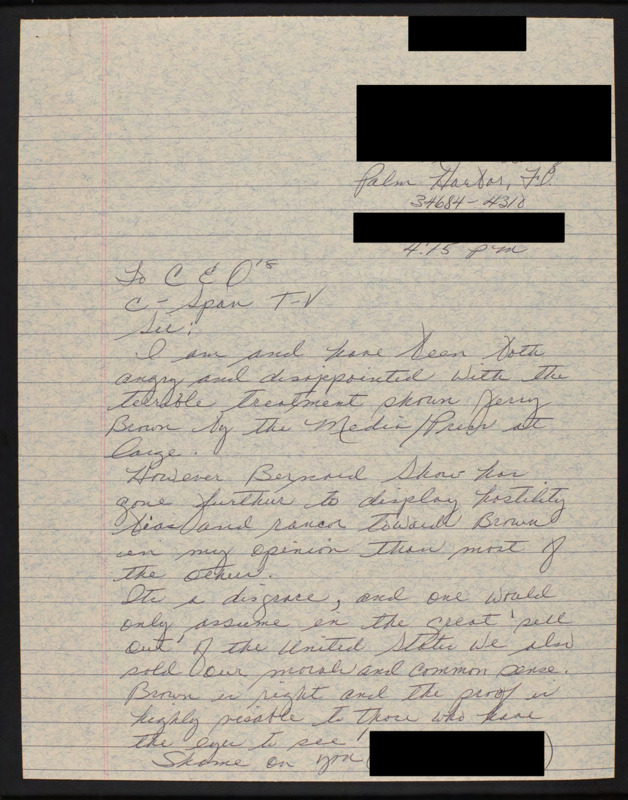 Palm Harbor, Fl.
34684-4310
4:15 pm
To C E O's
C-Span T-V
Sir:
I am and have been both
angry and disappointed with the
terrible treatment shown Jerry
Brown by the Media/Press at
large.
However Bernard Shaw has
gone further to display hostility
bias and rancor toward Brown
in my opinion than most of
the others.
Its a disgrace, and one would
only assume in the great 'sell
out' of the United States we also
sold our morals and common sense.
Brown is right and the proof is
highly visable to those who have
the eyes to see
Shame on you (
)